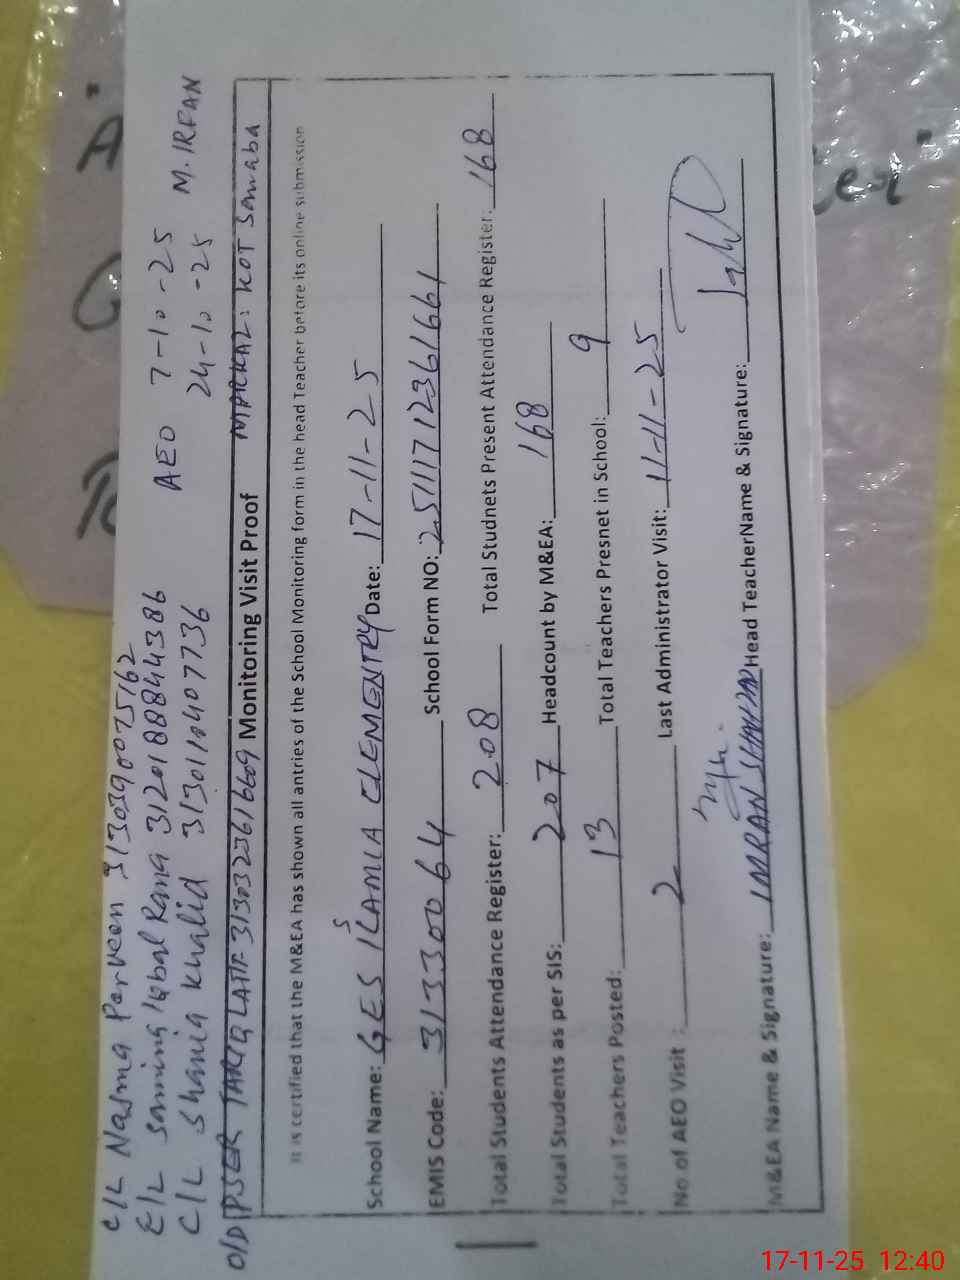 C/L Nasma Parveen 3130390075162
E/L Samina Iqbal Rana 3120188844386 AEO 7-10-25
C/L Shania Khalid 3130114407736 24-10-25 M.IRFAN
O/D PSER TARIQ LATIF 3130323616609 Monitoring Visit Proof MARKAZ: KOT Samaba
It is certified that the M&EA has shown all antries of the School Monitoring form in the head Teacher before its online submission
School Name: GES ISLAMIA ELEMENTRY Date: 17-11-25
EMIS Code: 31330064 School Form NO: 25111712361661
Total Students Attendance Register: 208 Total Studnets Present Attendance Register: 168
Total Students as per SIS: 207 Headcount by M&EA: 168
Total Teachers Posted: 13 Total Teachers Presnet in School: 9
No of AEO Visit : 2 Last Administrator Visit: 11-11-25
M&EA Name & Signature: IMRAN Head TeacherName & Signature:
17-11-25 12:40